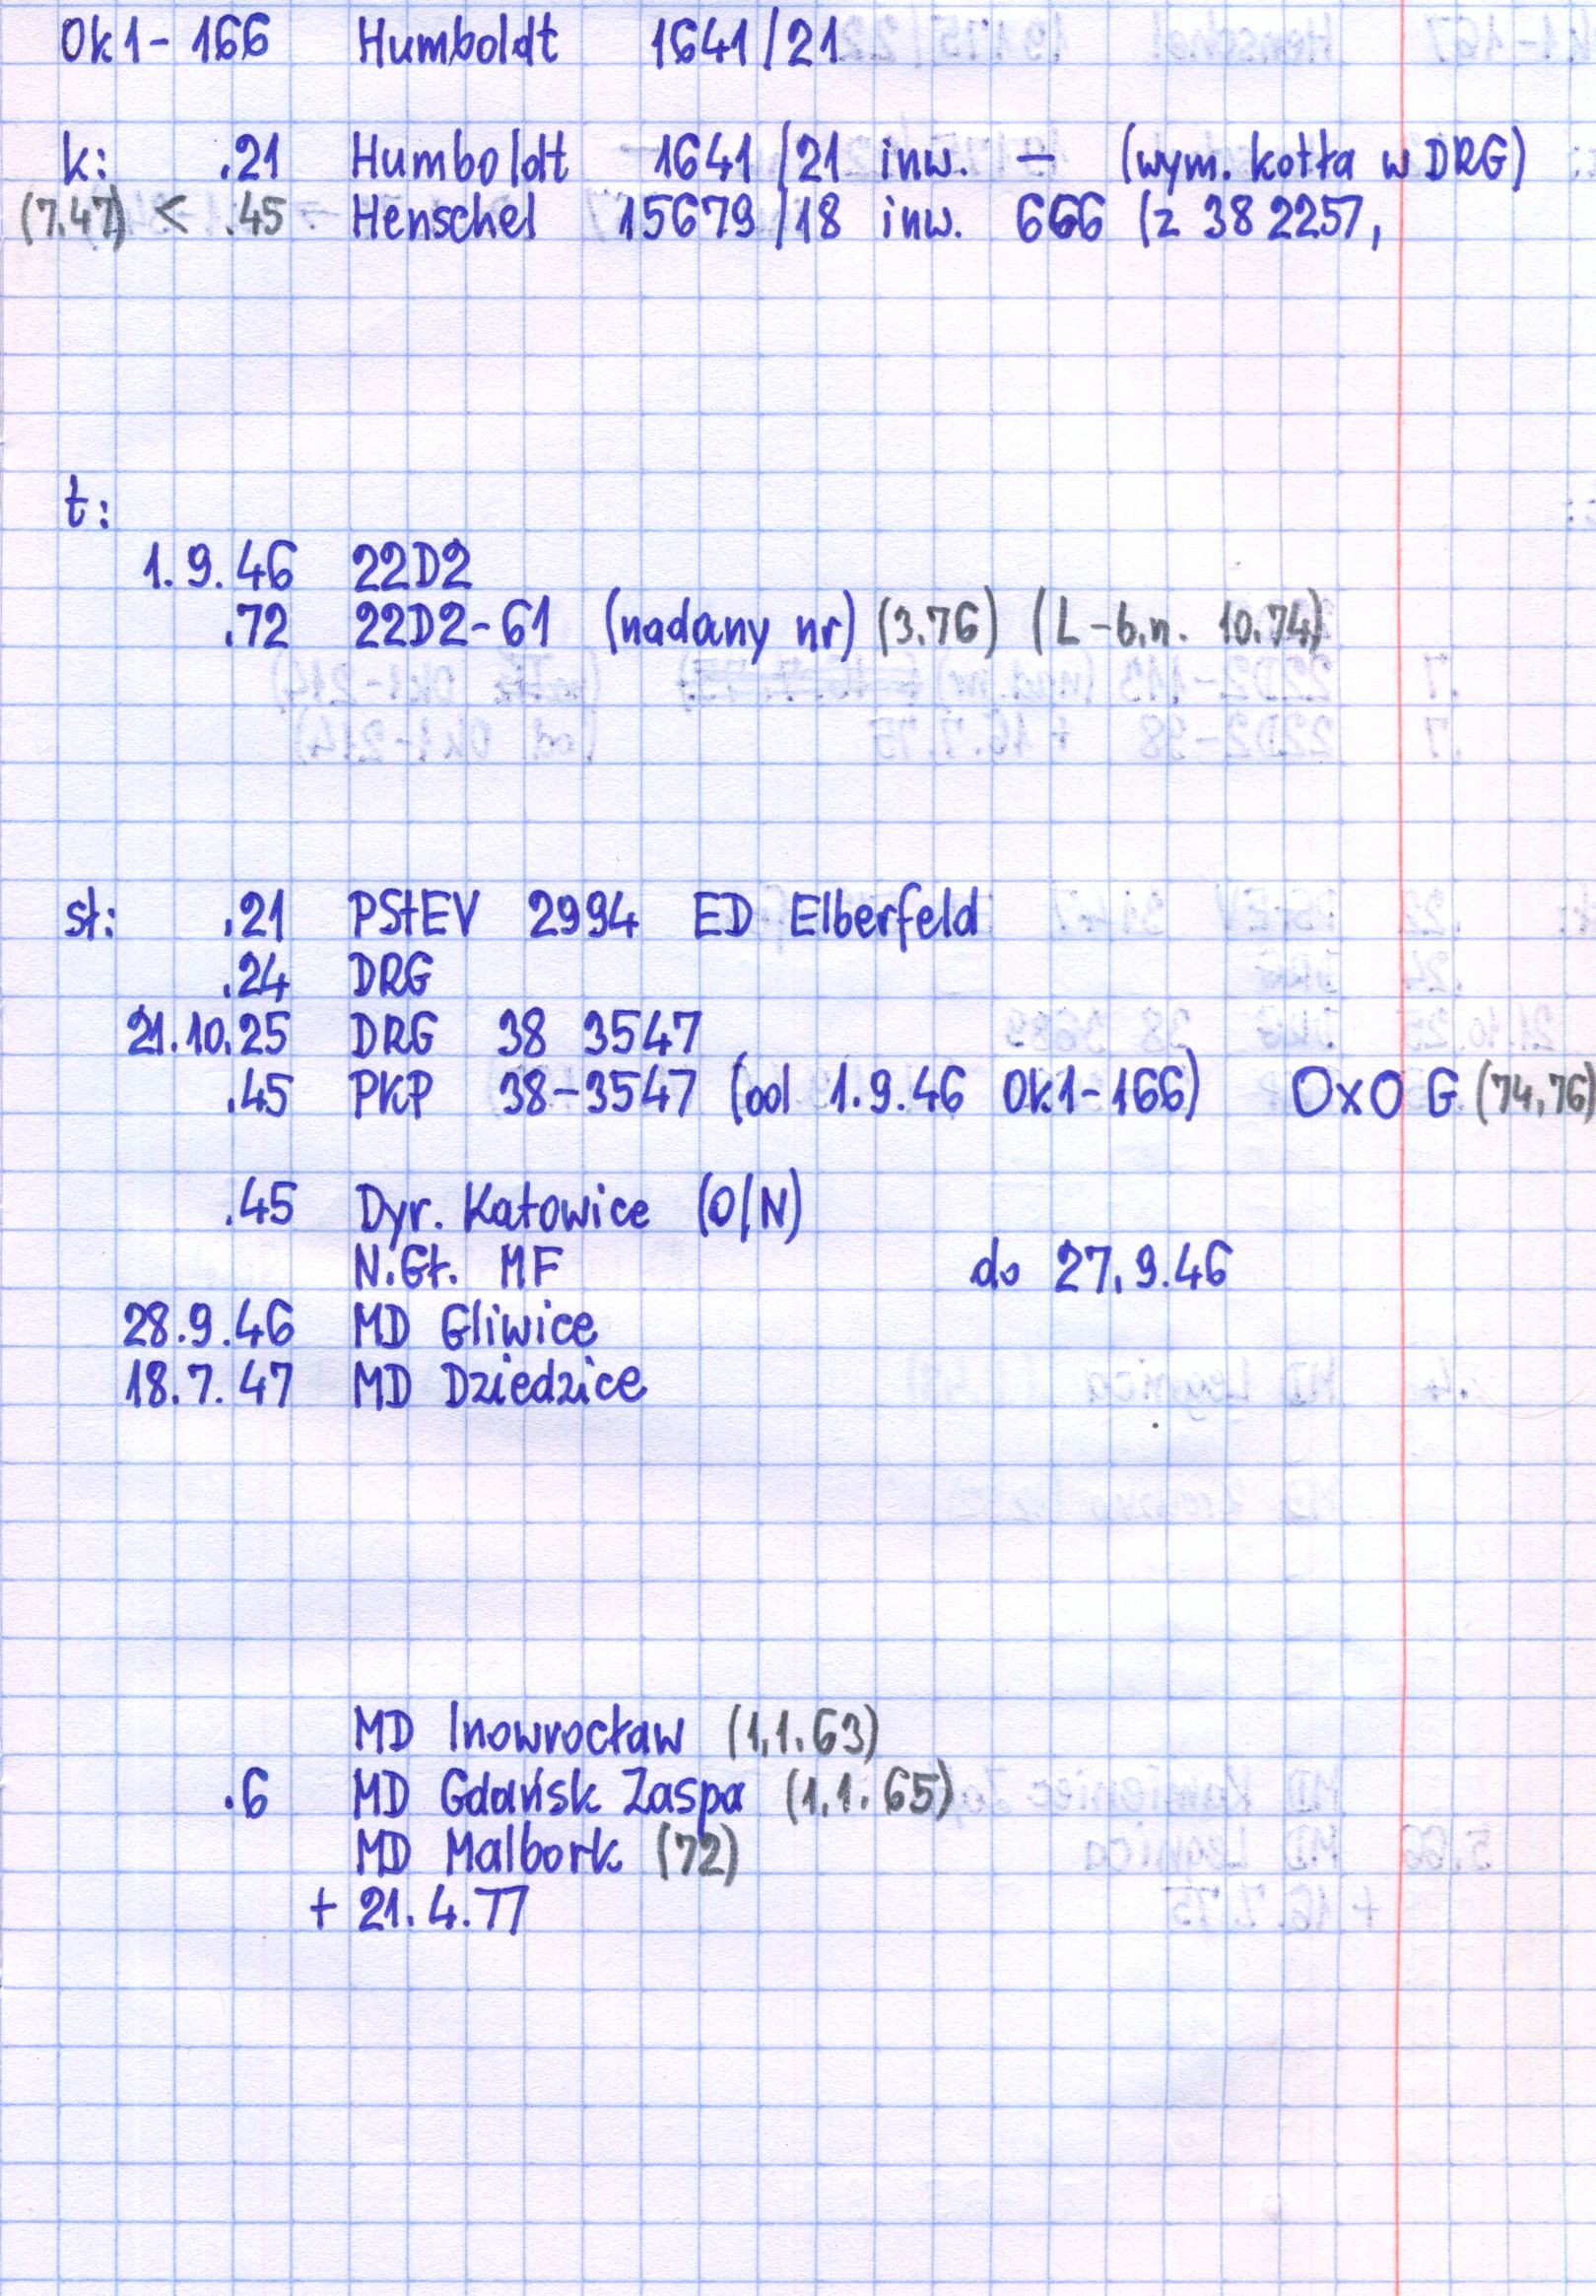 Ok1-166 Humboldt 1641/21
k: .21 Humboldt 1641/21 inw. — (wym. kotła w DRG)
(7.47) < .45 Henschel 15679/18 inw. 666 (z 38 2257,
t:
1.9.46 22D2
.72 22D2-61 (nadany nr) (3.76) (L-b.n. 10.74)
st: .21 PStEV 2994 ED Elberfeld
.24 DRG
21.10.25 DRG 38 3547
.45 PKP 38-3547 (od 1.9.46 Ok1-166) OxO G (74,76)
.45 Dyr. Katowice (O/N)
N.Gł. MF do 27.9.46
28.9.46 MD Gliwice
18.7.47 MD Dziedzice
MD Inowrocław (1.1.63)
.6 MD Gdańsk Zaspa (1.1.65)
MD Malbork (72)
+ 21.4.77